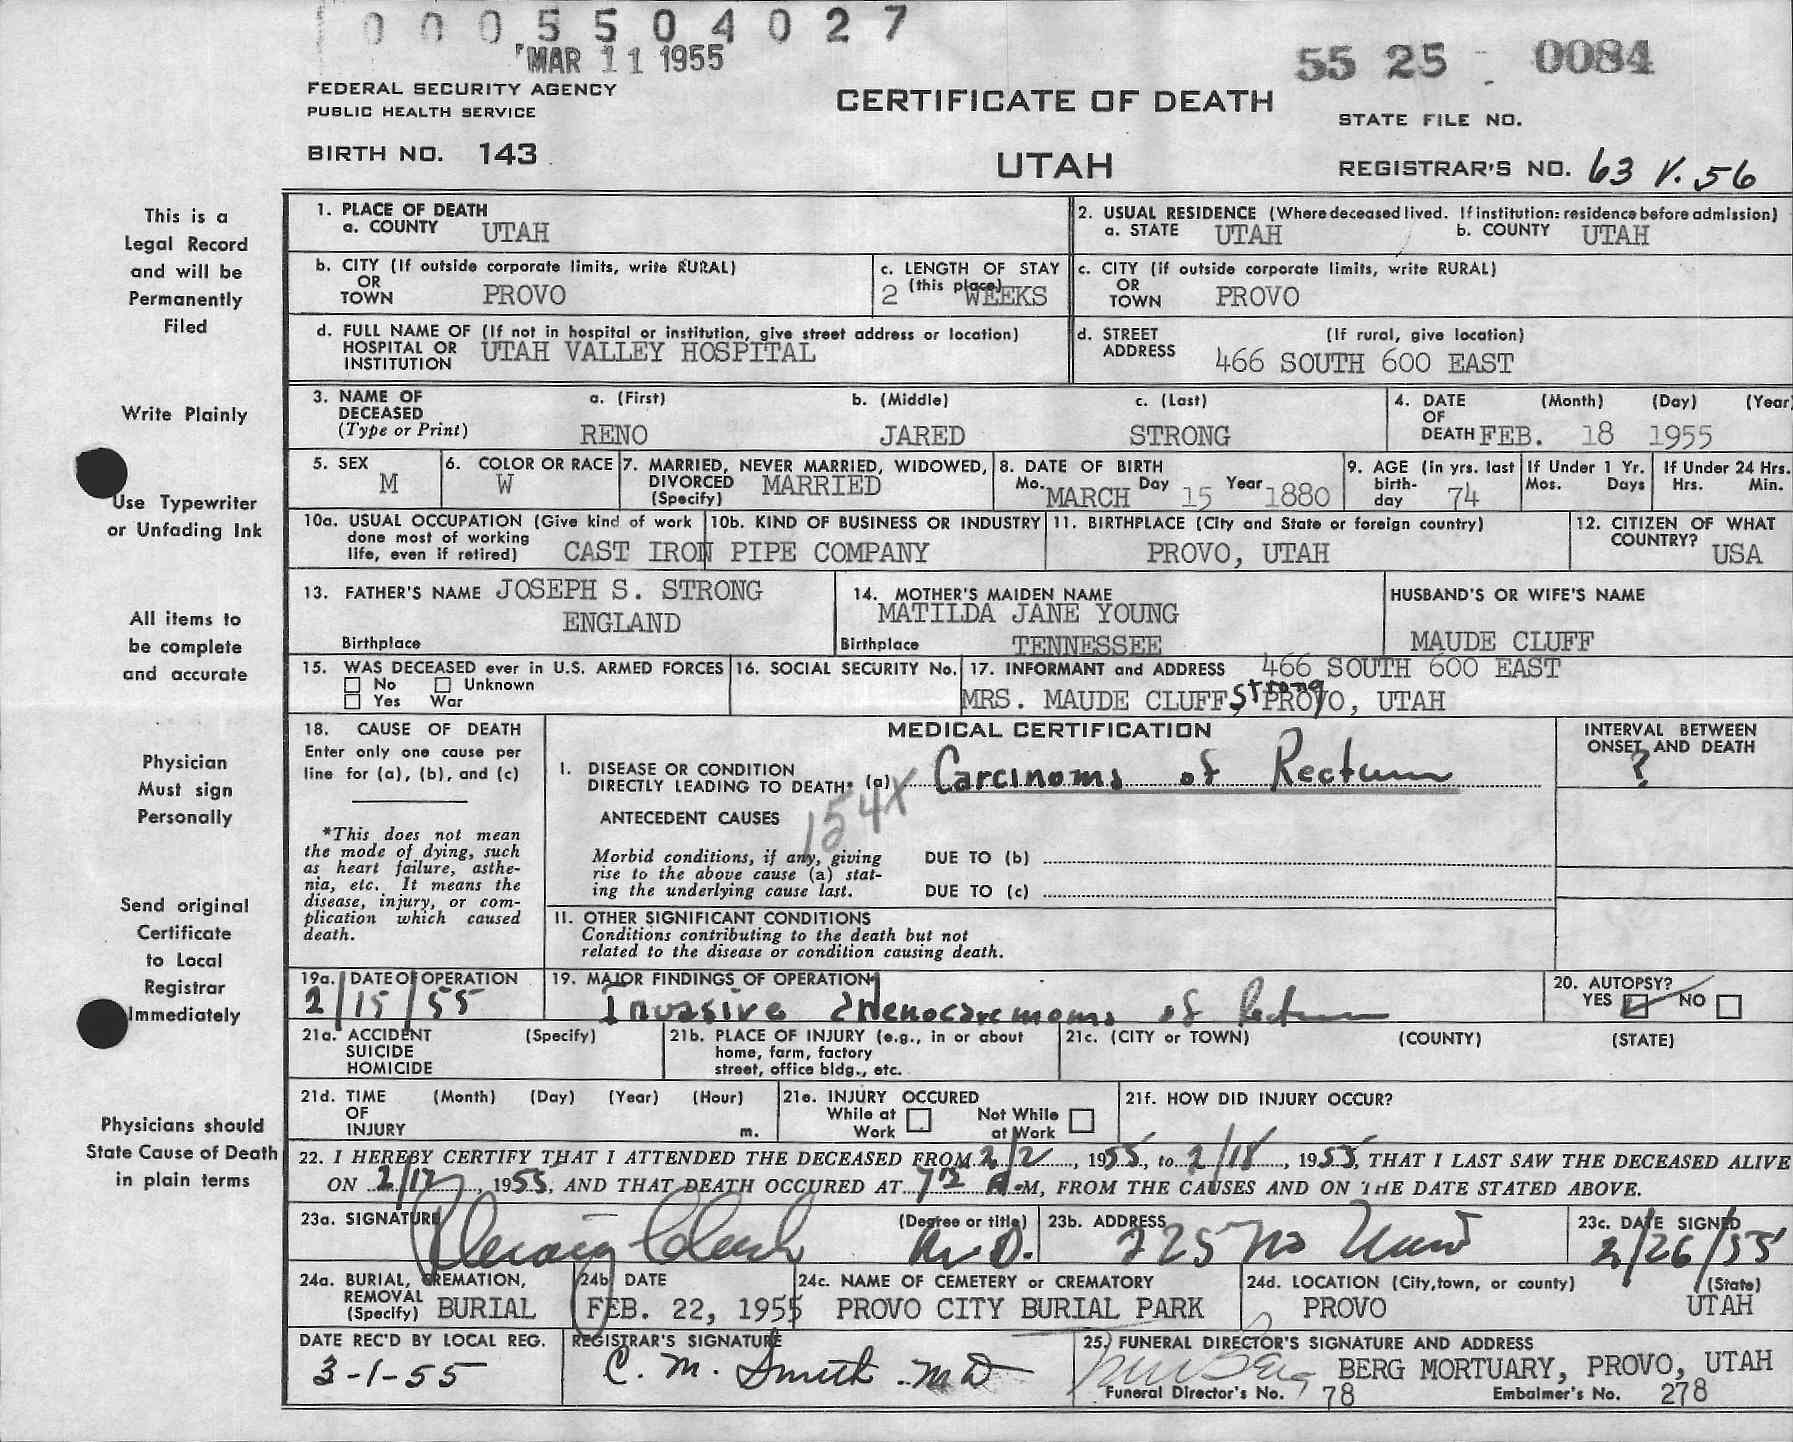 0005504027
MAR 11 1955
55 25 - 0084
FEDERAL SECURITY AGENCY
PUBLIC HEALTH SERVICE
CERTIFICATE OF DEATH
STATE FILE NO.
BIRTH NO. 143
UTAH
REGISTRAR'S NO. 63 V. 56
This is a
Legal Record
and will be
Permanently
Filed
Write Plainly
Use Typewriter
or Unfading Ink
All items to
be complete
and accurate
Physician
Must sign
Personally
Send original
Certificate
to Local
Registrar
Immediately
Physicians should
State Cause of Death
in plain terms
1. PLACE OF DEATH
a. COUNTY UTAH
2. USUAL RESIDENCE (Where deceased lived. If institution: residence before admission)
a. STATE UTAH b. COUNTY UTAH
b. CITY (If outside corporate limits, write RURAL)
OR
TOWN PROVO
c. LENGTH OF STAY
(this place)
2 WEEKS
c. CITY (if outside corporate limits, write RURAL)
OR
TOWN PROVO
d. FULL NAME OF (If not in hospital or institution, give street address or location)
HOSPITAL OR
INSTITUTION UTAH VALLEY HOSPITAL
d. STREET (If rural, give location)
ADDRESS 466 SOUTH 600 EAST
3. NAME OF a. (First) b. (Middle) c. (Last)
DECEASED
(Type or Print) RENO JARED STRONG
4. DATE (Month) (Day) (Year)
OF
DEATH FEB. 18 1955
5. SEX
M
6. COLOR OR RACE
W
7. MARRIED, NEVER MARRIED, WIDOWED,
DIVORCED MARRIED
(Specify)
8. DATE OF BIRTH
Mo. MARCH Day 15 Year 1880
9. AGE (in yrs. last
birth-
day 74
If Under 1 Yr.
Mos. Days
If Under 24 Hrs.
Hrs. Min.
10a. USUAL OCCUPATION (Give kind of work
done most of working
life, even if retired) CAST IRON PIPE COMPANY
10b. KIND OF BUSINESS OR INDUSTRY
11. BIRTHPLACE (City and State or foreign country)
PROVO, UTAH
12. CITIZEN OF WHAT
COUNTRY? USA
13. FATHER'S NAME JOSEPH S. STRONG
ENGLAND
Birthplace
14. MOTHER'S MAIDEN NAME
MATILDA JANE YOUNG
Birthplace TENNESSEE
HUSBAND'S OR WIFE'S NAME
MAUDE CLUFF
15. WAS DECEASED ever in U.S. ARMED FORCES
No Unknown
Yes War
16. SOCIAL SECURITY No.
17. INFORMANT and ADDRESS 466 SOUTH 600 EAST
MRS. MAUDE CLUFF Strong PROVO, UTAH
18. CAUSE OF DEATH
Enter only one cause per
line for (a), (b), and (c)
*This does not mean
the mode of dying, such
as heart failure, asthe-
nia, etc. It means the
disease, injury, or com-
plication which caused
death.
MEDICAL CERTIFICATION
INTERVAL BETWEEN
ONSET AND DEATH
?
I. DISEASE OR CONDITION
DIRECTLY LEADING TO DEATH* (a) Carcinoma of Rectum
154X
ANTECEDENT CAUSES
Morbid conditions, if any, giving
rise to the above cause (a) stat-
ing the underlying cause last.
DUE TO (b)
DUE TO (c)
II. OTHER SIGNIFICANT CONDITIONS
Conditions contributing to the death but not
related to the disease or condition causing death.
19a. DATE OF OPERATION
2/15/55
19. MAJOR FINDINGS OF OPERATION
Invasive Adenocarcinoma of Rectum
20. AUTOPSY?
YES NO
21a. ACCIDENT (Specify)
SUICIDE
HOMICIDE
21b. PLACE OF INJURY (e.g., in or about
home, farm, factory
street, office bldg., etc.
21c. (CITY or TOWN) (COUNTY) (STATE)
21d. TIME (Month) (Day) (Year) (Hour)
OF
INJURY m.
21e. INJURY OCCURED
While at Work
Not While at Work
21f. HOW DID INJURY OCCUR?
22. I HEREBY CERTIFY THAT I ATTENDED THE DECEASED FROM 2/2, 1955, to 2/18, 1955, THAT I LAST SAW THE DECEASED ALIVE
ON 2/17, 1955, AND THAT DEATH OCCURED AT A.M, FROM THE CAUSES AND ON THE DATE STATED ABOVE.
23a. SIGNATURE (Degree or title) M.D.
23b. ADDRESS
225 No
23c. DATE SIGNED
2/26/55
24a. BURIAL, CREMATION,
REMOVAL
(Specify) BURIAL
24b. DATE
FEB. 22, 1955
24c. NAME OF CEMETERY or CREMATORY
PROVO CITY BURIAL PARK
24d. LOCATION (City, town, or county) (State)
PROVO UTAH
DATE REC'D BY LOCAL REG.
3-1-55
REGISTRAR'S SIGNATURE
C. M. Smith MD
25. FUNERAL DIRECTOR'S SIGNATURE AND ADDRESS
BERG MORTUARY, PROVO, UTAH
Funeral Director's No. 78 Embalmer's No. 278